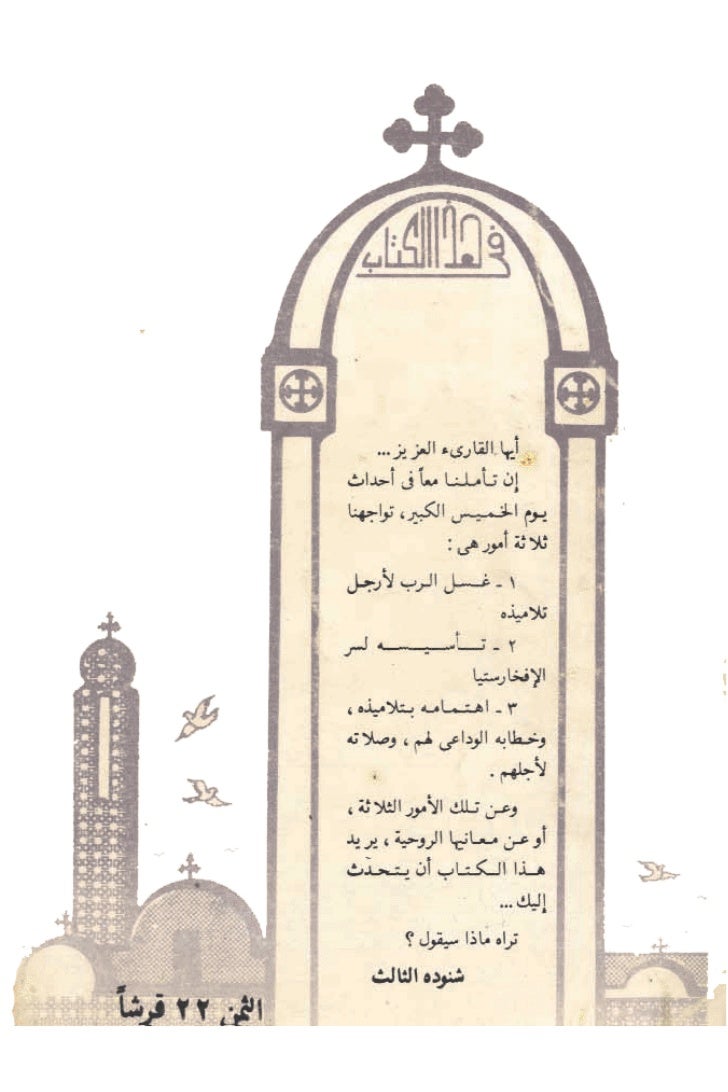 في هذا الكتاب
أيها القارىء العزيز...
إن تأملنا معاً فى أحداث
يوم الخميس الكبير، تواجهنا
ثلاثة أمور هى :
١ ـ غسل الرب لأرجل
تلاميذه
٢ ـ تأسيسه لسر
الإفخارستيا
٣ ـ اهتمامه بتلاميذه ،
وخطابه الوداعى لهم ، وصلاته
لأجلهم .
وعن تلك الأمور الثلاثة ،
أو عن معانيها الروحية ، يريد
هذا الكتاب أن يتحدّث
إليك...
تراه ماذا سيقول ؟
شنوده الثالث
الثمن ٢٢ قرشاً